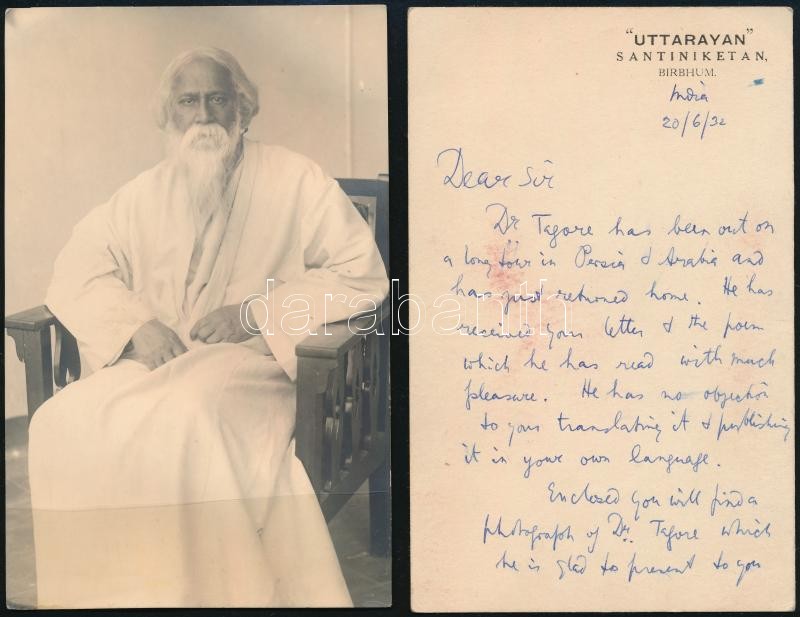 "UTTARAYAN"
SANTINIKETAN,
BIRBHUM.
India
20/6/32
Dear Sir
Dr Tagore has been out on
a long tour in Persia & Arabia and
has just returned home. He has
received your letter & the poem
which he has read with much
pleasure. He has no objection
to your translating it & publishing
it in your own language.
Enclosed you will find a
photograph of Dr. Tagore which
he is glad to present to you
darabanth